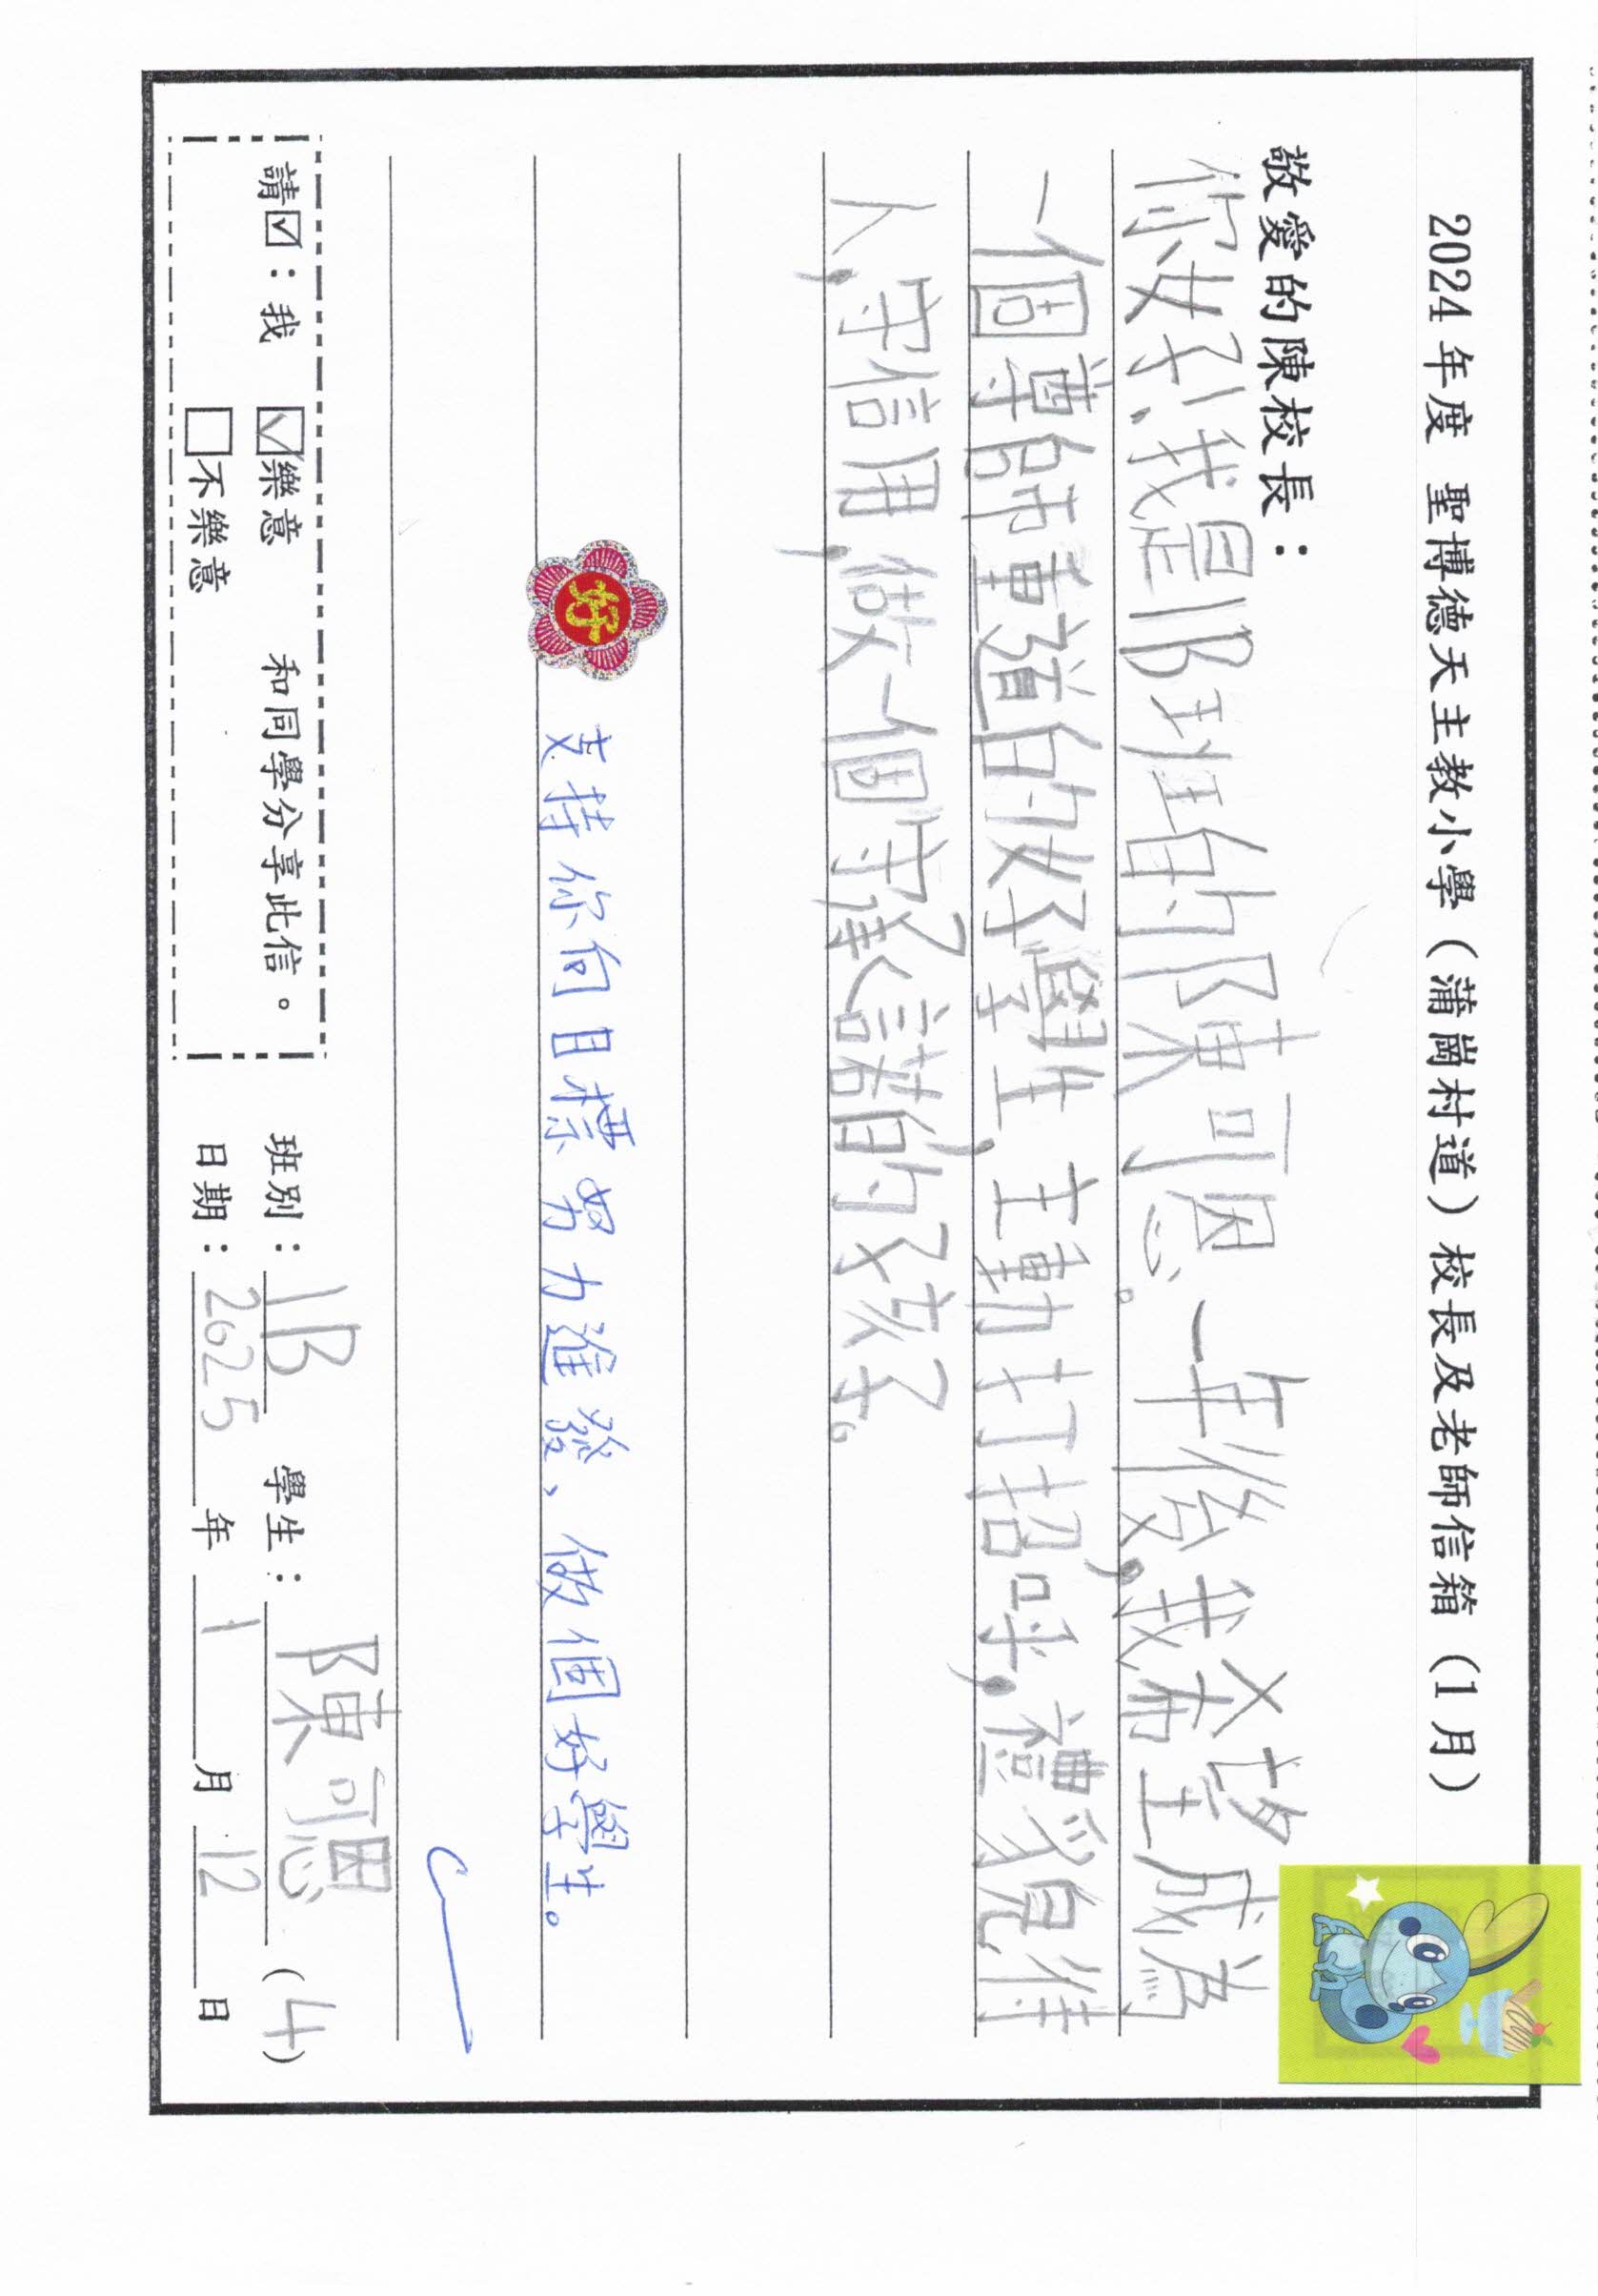 2024年度 聖博德天主教小學（蒲崗村道）校長及老師信箱（1月）
敬愛的陳校長：
你好！我是1B班的陳可恩。一年後，我希望成為
一個尊師重道的好學生，主動打招呼，禮貌待
人，守信用，做一個守承諾的孩子。
好
支持你向目標努力進發、做個好學生。
請☑：我 ☑樂意 和同學分享此信。
□不樂意
班別：1B 學生：陳可恩（4）
日期：2025年1月12日